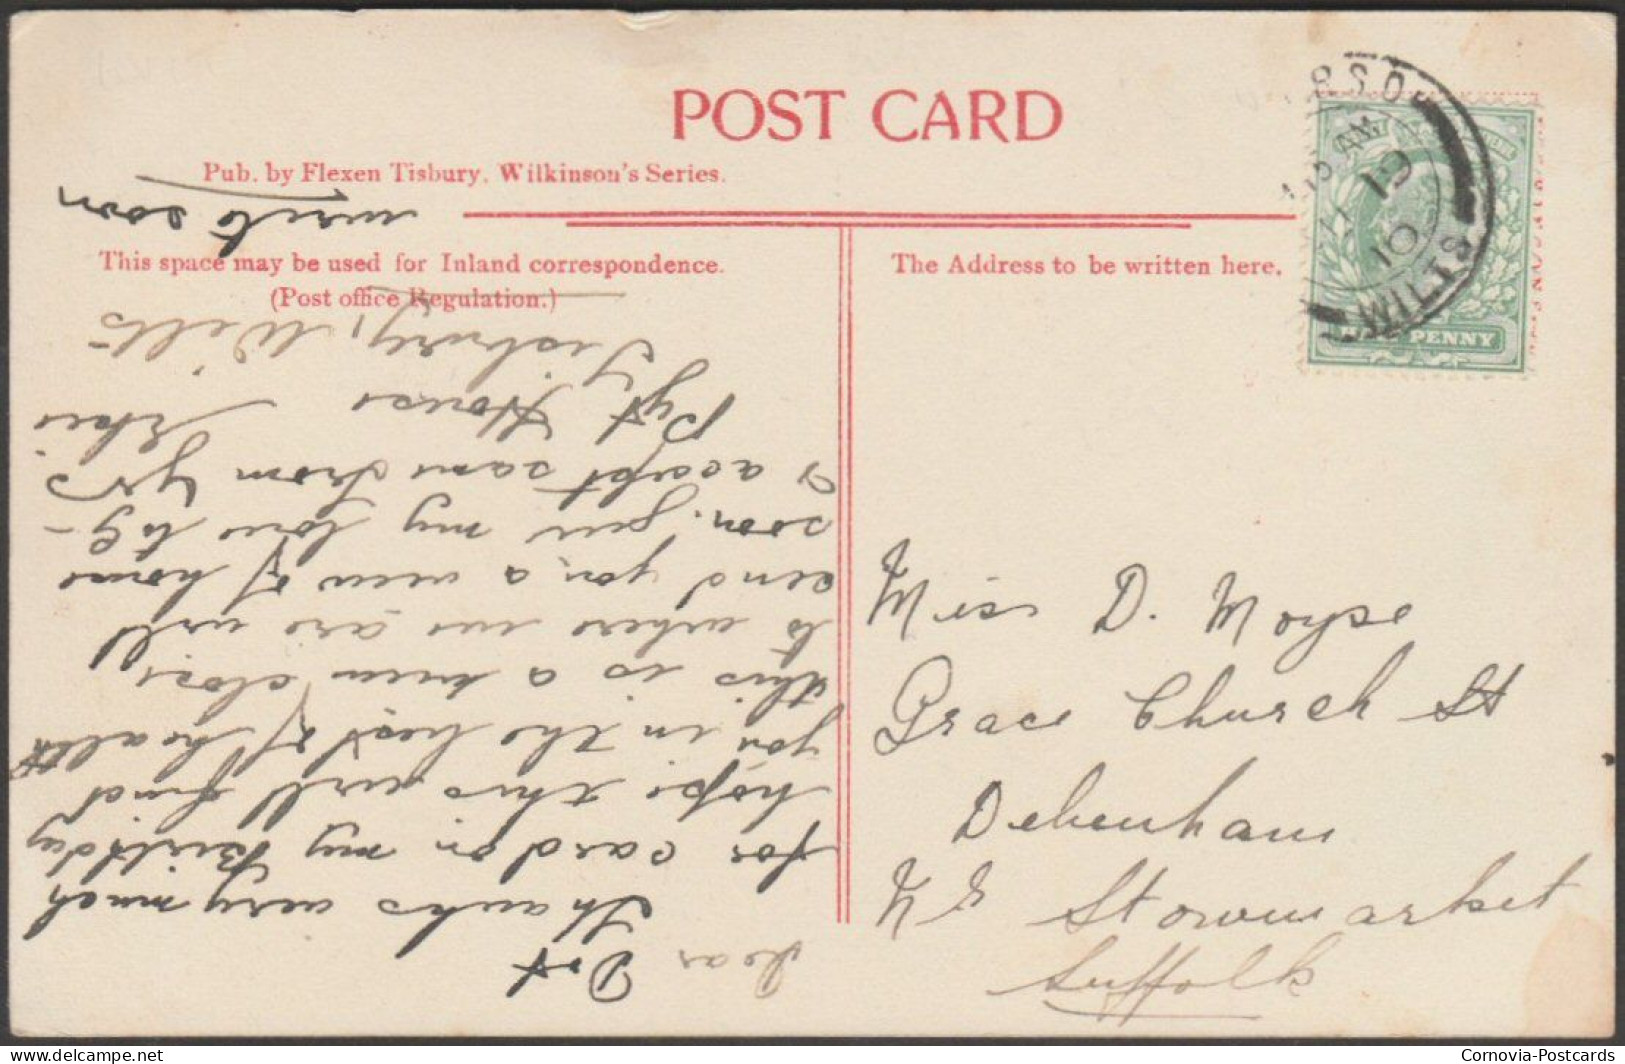 POST CARD
Pub. by Flexen Tisbury. Wilkinson's Series.
This space may be used for Inland correspondence.
(Post office Regulation.)
The Address to be written here.
RSO
AM
19
10
WILTS
HALFPENNY
Miss D. Moyse
Grace Church St
Debenham
Nr Stowmarket
Suffolk
Dear Dot
Thanks very much
for card on my Birthday
hope this will find
you in the best of health
this is a view close
to where we are will
send you a view of home
soon. give my love to
& accept same from yrs
Elsie
Pyt House
Tisbury, Wilts
write soon
Cornovia-Postcards